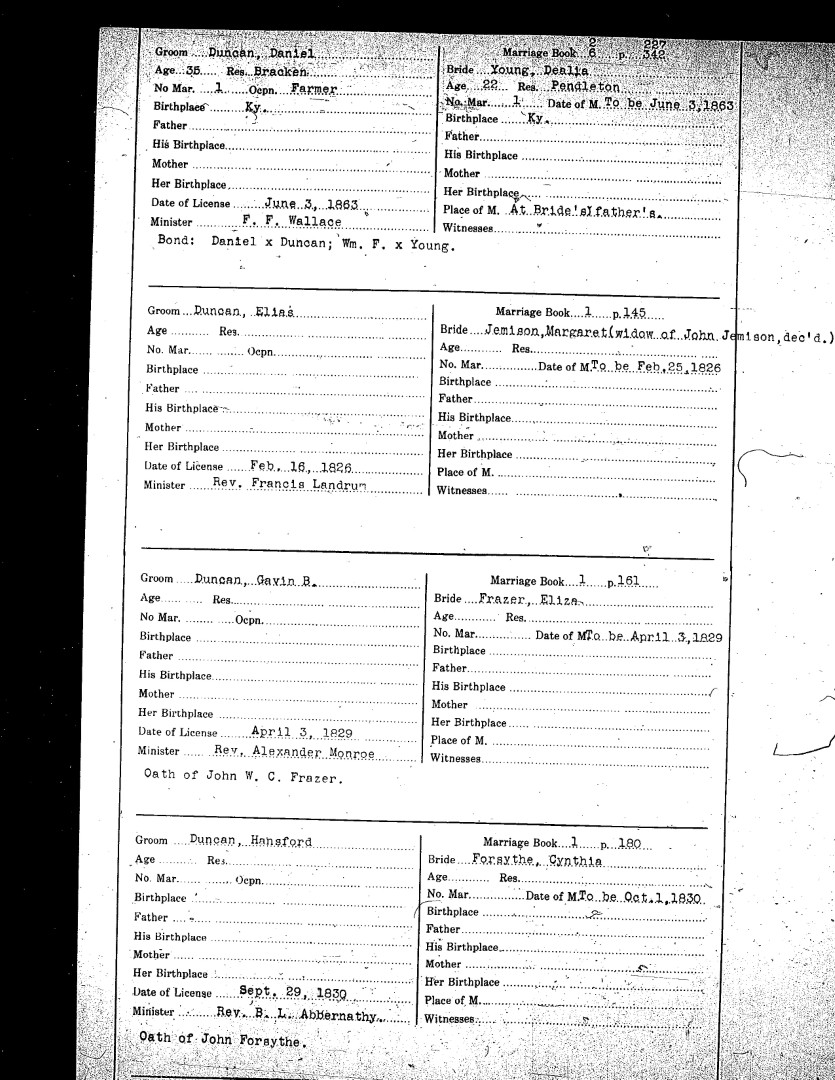 Groom Duncan, Daniel
Age 35 Res. Bracken
No Mar. 1 Ocpn. Farmer
Birthplace Ky.
Father
His Birthplace
Mother
Her Birthplace
Date of License June 3, 1863
Minister F. F. Wallace
Bond: Daniel x Duncan; Wm. F. x Young.
2 227
Marriage Book 6 p. 342
Bride Young, Dealia
Age 22 Res. Pendleton
No. Mar. 1 Date of M. To be June 3,1863
Birthplace Ky.
Father
His Birthplace
Mother
Her Birthplace
Place of M. At Bride's father's.
Witnesses
Groom Duncan, Elias
Age Res.
No. Mar. Ocpn.
Birthplace
Father
His Birthplace
Mother
Her Birthplace
Date of License Feb. 16, 1826
Minister Rev. Francis Landrum
Marriage Book 1 p. 145
Bride Jemison,Margaret(widow of John Jemison,dec'd.)
Age Res.
No. Mar. Date of M. To be Feb.25,1826
Birthplace
Father
His Birthplace
Mother
Her Birthplace
Place of M.
Witnesses
Groom Duncan, Gavin B.
Age Res.
No Mar. Ocpn.
Birthplace
Father
His Birthplace
Mother
Her Birthplace
Date of License April 3, 1829
Minister Rev. Alexander Monroe
Oath of John W. C. Frazer.
Marriage Book 1 p. 161
Bride Frazer, Eliza
Age Res.
No. Mar. Date of M. To be April 3,1829
Birthplace
Father
His Birthplace
Mother
Her Birthplace
Place of M.
Witnesses
Groom Duncan, Hansford
Age Res.
No. Mar. Ocpn.
Birthplace
Father
His Birthplace
Mother
Her Birthplace
Date of License Sept. 29, 1830
Minister Rev. B. L. Abbernathy
Oath of John Forsythe.
Marriage Book 1 p. 180
Bride Forsythe, Cynthia
Age Res.
No. Mar. Date of M. To be Oct.1,1830
Birthplace
Father
His Birthplace
Mother
Her Birthplace
Place of M.
Witnesses